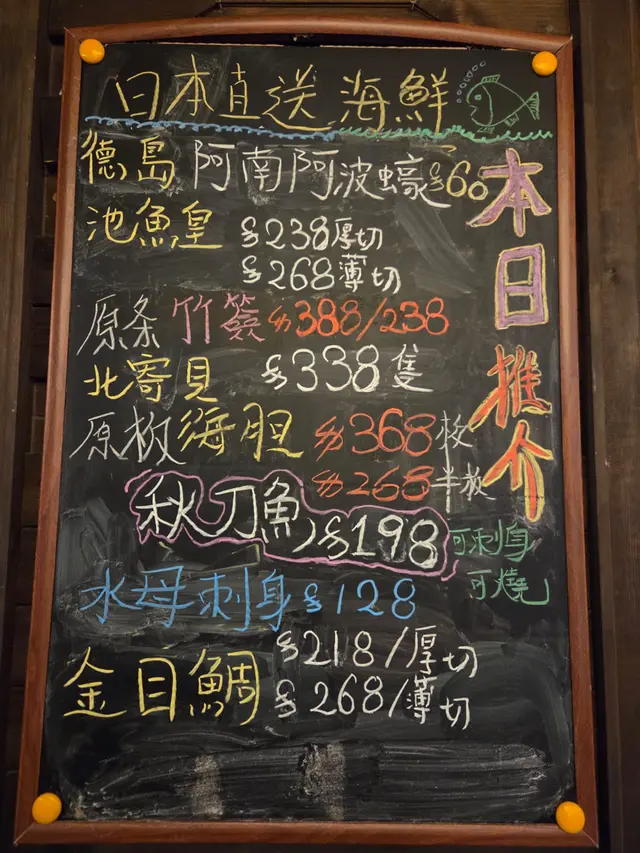 日本直送海鮮
本日推介
德島 阿南阿波蠔 $60
池魚皇 $238厚切
$268薄切
原条 竹籤 $388/238
北寄貝 $338隻
原板海胆 $368枚
$268半板
秋刀魚 $198 可刺身
可燒
水母刺身 $128
金目鯛 $218/厚切
$268/薄切